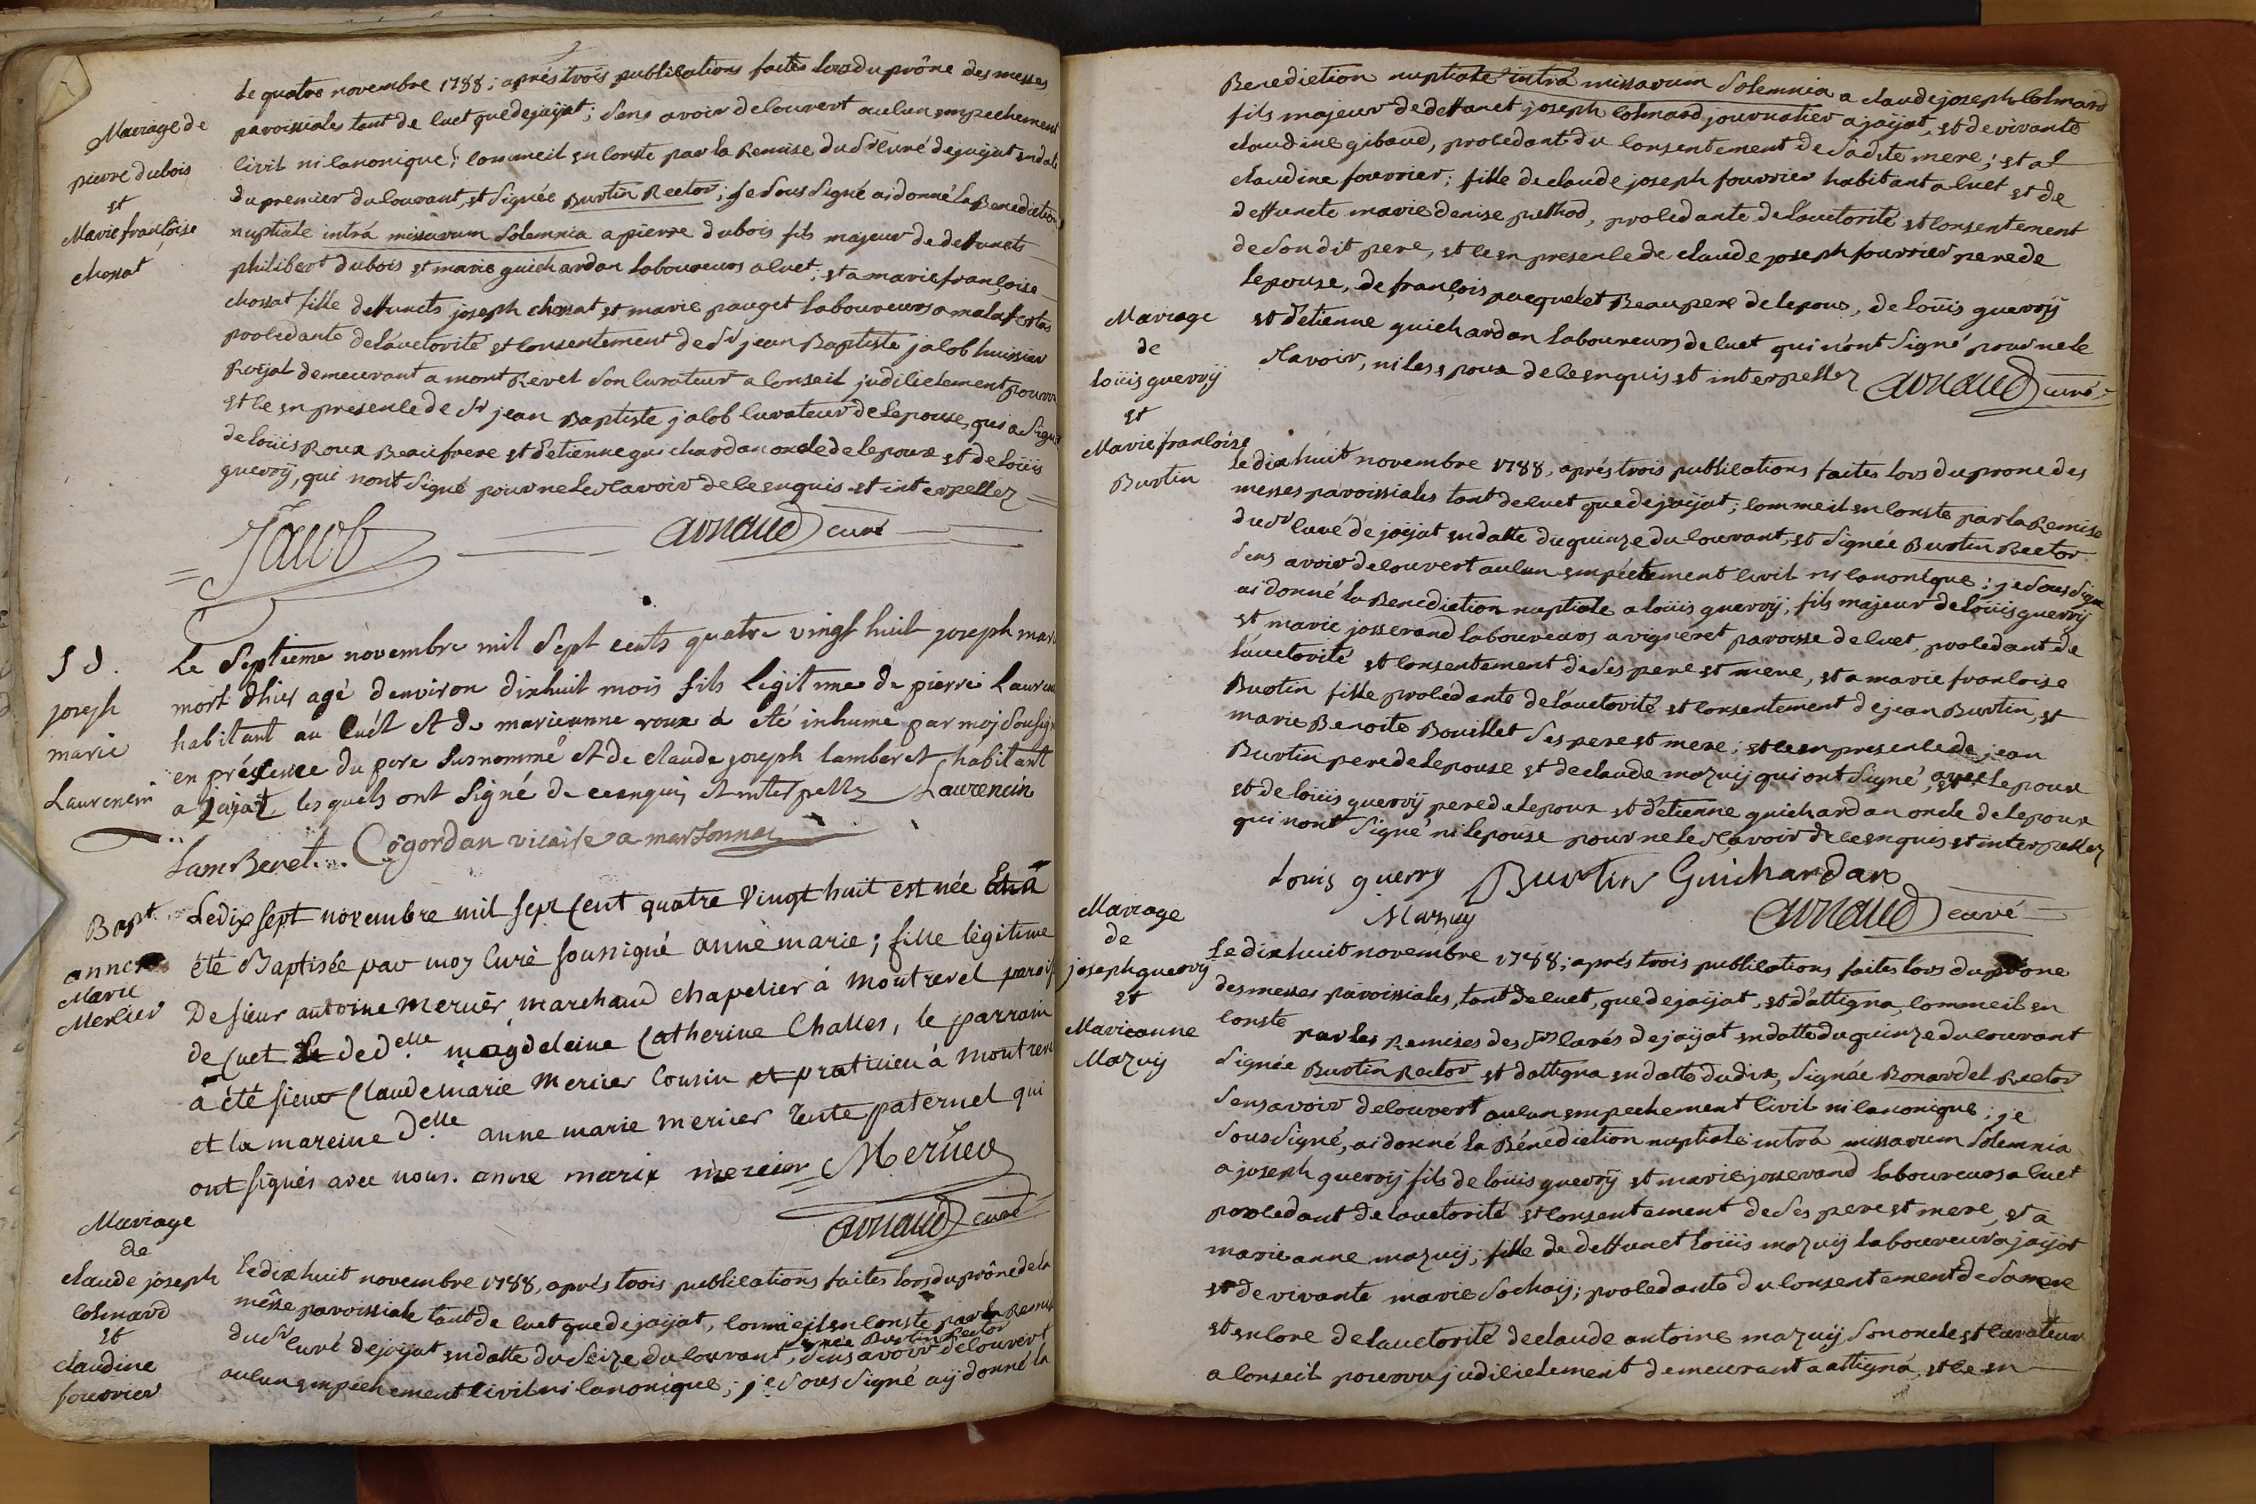 Mariage de
pierre dubois
et
Marie françoise
chossat
Le quatre novembre 1788; aprés trois publications faites lors du prône des messes
paroissiales tant de cuet que de jaÿat; sans avoir decouvert aucun empechement
civil ni canonique; comme il en conste par la Remise du Sr curé de jaÿat en date
du premier du courant, et signée Burtin Rector; je soussigné ai donné la Benediction
nuptiale intrá missarum solemnia a pierre dubois fils majeur de deffuncts
philibert dubois et marie guichardan laboureurs a cuet; et a marie françoise
chossat fille deffuncts joseph chossat et marie pauget laboureurs a malafretas
procedante de l'auctorité et consentement de Sr jean Baptiste jacob huissier
Royal demeurant a montRevel son curateur a conseil judicielement pourvu
et ce en presence de Sr jean Baptiste jacob curateur de l'epouse, qui a signé
de loüis Roux Beaufrere et d'etienne guichardan oncle de l'epoux et de loüis
guerrÿ, qui nont signé pour ne le sçavoir de ce enquis et interpellez
Jacob arnaud curé
S d.
joseph
marie
Laurencin
Le Septieme novembre mil Sept cents quatre vingt huit joseph marie
mort d'hier agé denviron dixhuit mois fils legitime de pierre Laurencin
habitant au Cuét et de marieanne roux à été inhumé par moj Sousigné
en présence du pere susnommé et de claude joseph lamberet habitant
a jajat lesquels ont signé de ce enquis et interpellz Laurencin
LamBeret Cogordan vicaire a marsonnas
Bapt.
anne
Marie
Mercier
Le dix sept novembre mil sept cent quatre vingt huit est née et a
été Baptisée par moy curé soussigné anne marie; fille légitime
De sieur antoine Mercier, marchand chapelier à montrevel paroisse
de cuet de delle magdeleine catherine Challes, le parrain
a été sieur Claudemarie Mercier Cousin et praticien à montrevel
et la mareine delle anne marie mercier tente paternel qui
ont signés avec nous. anne marie mercier Mercier
arnaud curé
Mariage
de
claude joseph
colmard
et
claudine
fourrier
Le dixhuit novembre 1788, aprés trois publications faites lors du prône de la
messe paroissiale tant de cuet que de jaÿat, comme il en conste par la Remise
du Sr curé de jaÿat en datte du seize du courant, signée Burtin Rector sans avoir decouvert
aucun empechement civil ni canonique; je soussigné aÿ donné la
Benediction nuptiale intrá missarum solemnia a claude joseph colmard
fils majeur de deffunct joseph colmard journalier a jaÿat, et de vivante
claudine gibaud, procedant du consentement de sadite mere; et a
claudine fourrier; fille de claude joseph fourrier habitant a cuet et de
deffuncte marie denise pethod, procedante de l'auctorité et consentement
de son dit pere, et ce en presence de claude joseph fourrier pere de
lepouse, de françois pacquelet Beaupere de lepoux, de loüis guerrÿ
et d'etienne guichardan laboureurs de cuet qui n'ont signé pour ne le
sçavoir, ni les epoux de ce enquis et interpellez arnaud curé
Mariage
de
loüis guerrÿ
et
Marie françoise
Burtin
Le dix huit novembre 1788, aprés trois publications faites lors du prone des
messes paroissiales tant de cuet que de jaÿat; comme il en conste par la Remise
du Sr curé de jaÿat en datte du quinze du courant, et signée Burtin Rector
sans avoir decouvert aucun empéchement civil ni canonique; je soussigné
ai donné la Benediction nuptiale a loüis guerrÿ, fils majeur de loüis guerrÿ
et marie josserand laboureurs a vigneret paroisse de cuet, procedant de
l'auctorité et consentement de ses pere et mere, et a marie françoise
Burtin fille procédante de l'auctorité et consentement de jean Burtin, et
marie Benoite Bouillet ses pere et mere; et ce en presence de jean
Burtin pere de lepouse et de claude mazuÿ qui ont signé, avec lepoux
et de loüis guerrÿ pere de lepoux et d'etienne guichardan oncle de lepoux
qui nont signé ni lepouse pour ne le sçavoir de ce enquis et interpellez
Louis guerry Burtin Guichardan
Mazuy arnaud curé
Mariage
de
joseph guerrÿ
et
Marieanne
Mazuÿ
Le dixhuit novembre 1788; aprés trois publications faites lors du prône
des messes paroissiales, tant de cuet, que de jaÿat, et d'attigna, comme il en
conste par les Remises des Srs curés de jaÿat en datte du quinze du courant
signée Burtin Rector et dattigna en datte du dix, signée Bonardel Rector
sans avoir decouvert aucun empechement civil ni canonique; je
soussigné, ai donné la Bénédiction nuptiale intrá missarum solemnia
a joseph guerrÿ fils de loüis guerrÿ et marie josserand laboureurs a cuet
procedant de lauctorité et consentement de ses pere et mere, et a
marie anne mazuÿ; fille de deffunct loüis mazuÿ laboureur a jaÿat
et de vivante marie sochaÿ; procedante du consentement de sa mere
et encore de lauctorité de claude antoine mazuÿ son oncle et curateur
a conseil pourvu judicielement demeurant a attigna, et ce en